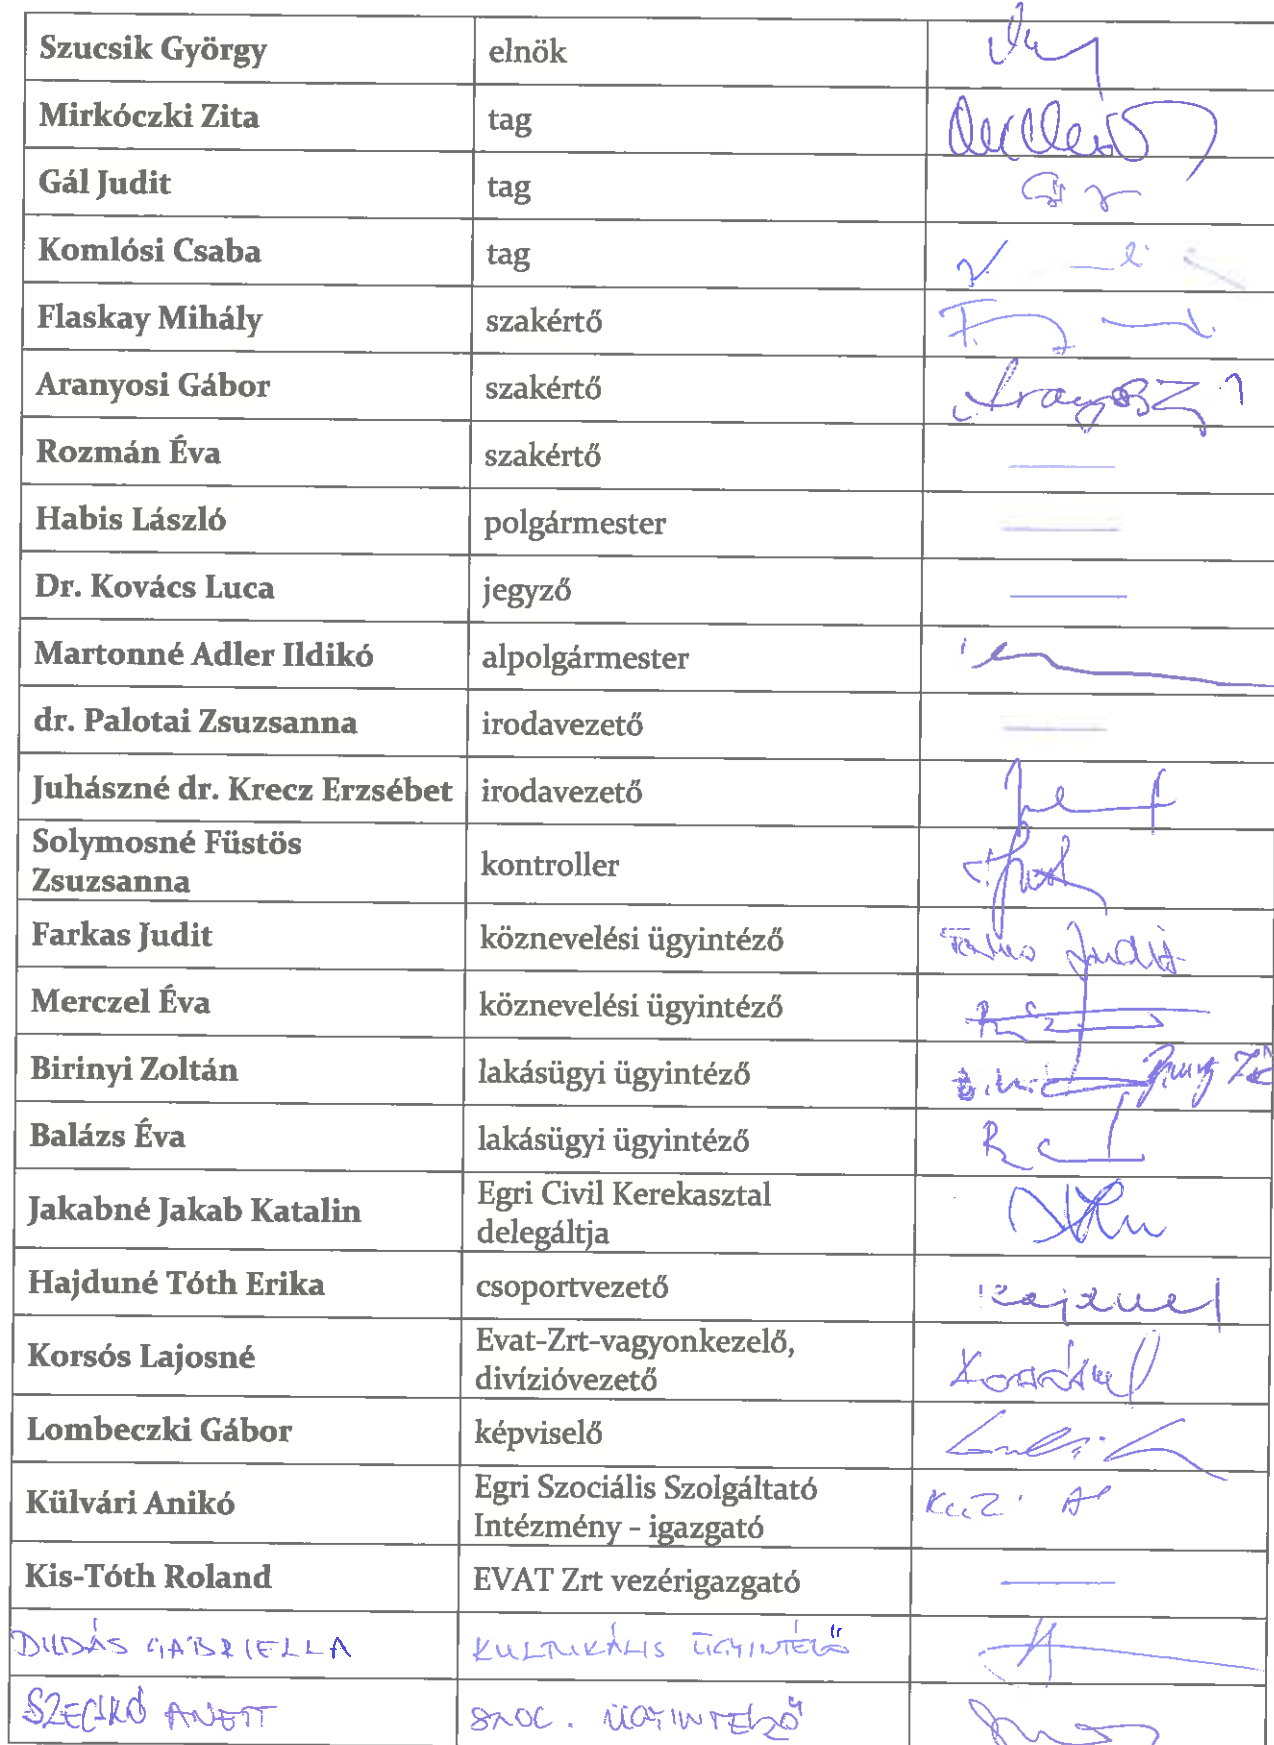 Szucsik György elnök
Mirkóczki Zita tag
Gál Judit tag
Komlósi Csaba tag
Flaskay Mihály szakértő
Aranyosi Gábor szakértő
Rozmán Éva szakértő
Habis László polgármester
Dr. Kovács Luca jegyző
Martonné Adler Ildikó alpolgármester
dr. Palotai Zsuzsanna irodavezető
Juhászné dr. Krecz Erzsébet irodavezető
Solymosné Füstös
Zsuzsanna
kontroller
Farkas Judit köznevelési ügyintéző Farkas Judit
Merczel Éva köznevelési ügyintéző
Birinyi Zoltán lakásügyi ügyintéző
Balázs Éva lakásügyi ügyintéző
Jakabné Jakab Katalin
Egri Civil Kerekasztal
delegáltja
Hajduné Tóth Erika csoportvezető
Korsós Lajosné
Evat-Zrt-vagyonkezelő,
divízióvezető
Lombeczki Gábor képviselő
Külvári Anikó
Egri Szociális Szolgáltató
Intézmény - igazgató
Kis-Tóth Roland EVAT Zrt vezérigazgató
DUDÁS GABRIELLA KULTURÁLIS ÜGYINTÉZŐ
SZECSKÓ ANETT SZOC. ÜGYINTÉZŐ